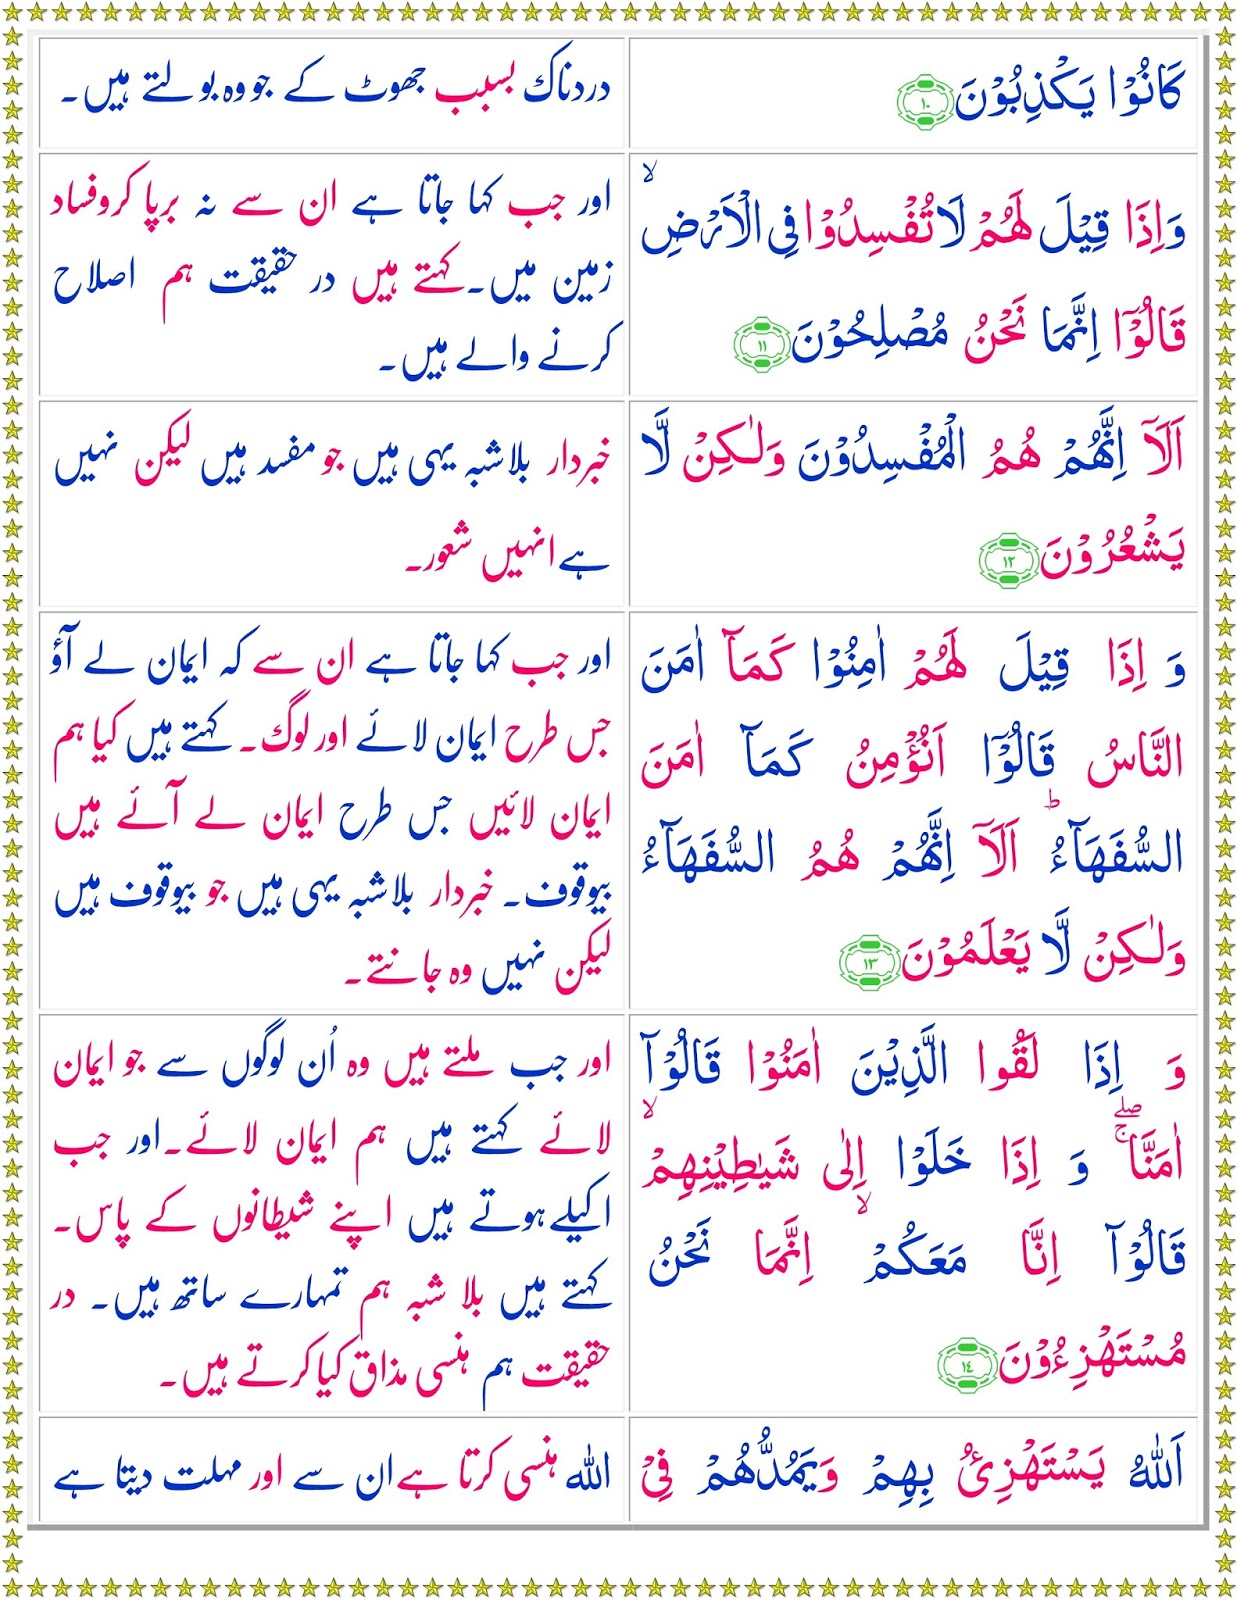 كَانُوْا يَكْذِبُوْنَ ۝١٠
دردناك بسبب جھوٹ کے جو وہ بولتے ہیں۔
وَاِذَا قِيْلَ لَهُمْ لَا تُفْسِدُوْا فِى الْاَرْضِ ۙ
قَالُوْٓا اِنَّمَا نَحْنُ مُصْلِحُوْنَ ۝١١
اور جب کہا جاتا ہے ان سے نہ برپا کرو فساد
زمین میں۔ کہتے ہیں در حقیقت ہم اصلاح
کرنے والے ہیں۔
اَلَآ اِنَّهُمْ هُمُ الْمُفْسِدُوْنَ وَلٰكِنْ لَّا
يَشْعُرُوْنَ ۝١٢
خبردار بلاشبہ یہی ہیں جو مفسد ہیں لیکن نہیں
ہے انہیں شعور۔
وَ اِذَا قِيْلَ لَهُمْ اٰمِنُوْا كَمَآ اٰمَنَ
النَّاسُ قَالُوْٓا اَنُؤْمِنُ كَمَآ اٰمَنَ
السُّفَهَآءُ ؕ اَلَآ اِنَّهُمْ هُمُ السُّفَهَآءُ
وَلٰكِنْ لَّا يَعْلَمُوْنَ ۝١٣
اور جب کہا جاتا ہے ان سے کہ ایمان لے آؤ
جس طرح ایمان لائے اور لوگ۔ کہتے ہیں کیا ہم
ایمان لائیں جس طرح ایمان لے آئے ہیں
بیوقوف۔ خبردار بلاشبہ یہی ہیں جو بیوقوف ہیں
لیکن نہیں وہ جانتے۔
وَ اِذَا لَقُوا الَّذِيْنَ اٰمَنُوْا قَالُوْآ
اٰمَنَّا ۖۚ وَ اِذَا خَلَوْا اِلٰى شَيٰطِيْنِهِمْ ۙ
قَالُوْآ اِنَّا مَعَكُمْ ۙ اِنَّمَا نَحْنُ
مُسْتَهْزِءُوْنَ ۝١٤
اور جب ملتے ہیں وہ اُن لوگوں سے جو ایمان
لائے کہتے ہیں ہم ایمان لائے۔ اور جب
اکیلے ہوتے ہیں اپنے شیطانوں کے پاس۔
کہتے ہیں بلا شبہ ہم تمہارے ساتھ ہیں۔ در
حقیقت ہم ہنسی مذاق کیا کرتے ہیں۔
اَللّٰهُ يَسْتَهْزِئُ بِهِمْ وَيَمُدُّهُمْ فِىْ
اللہ ہنسی کرتا ہے ان سے اور مہلت دیتا ہے